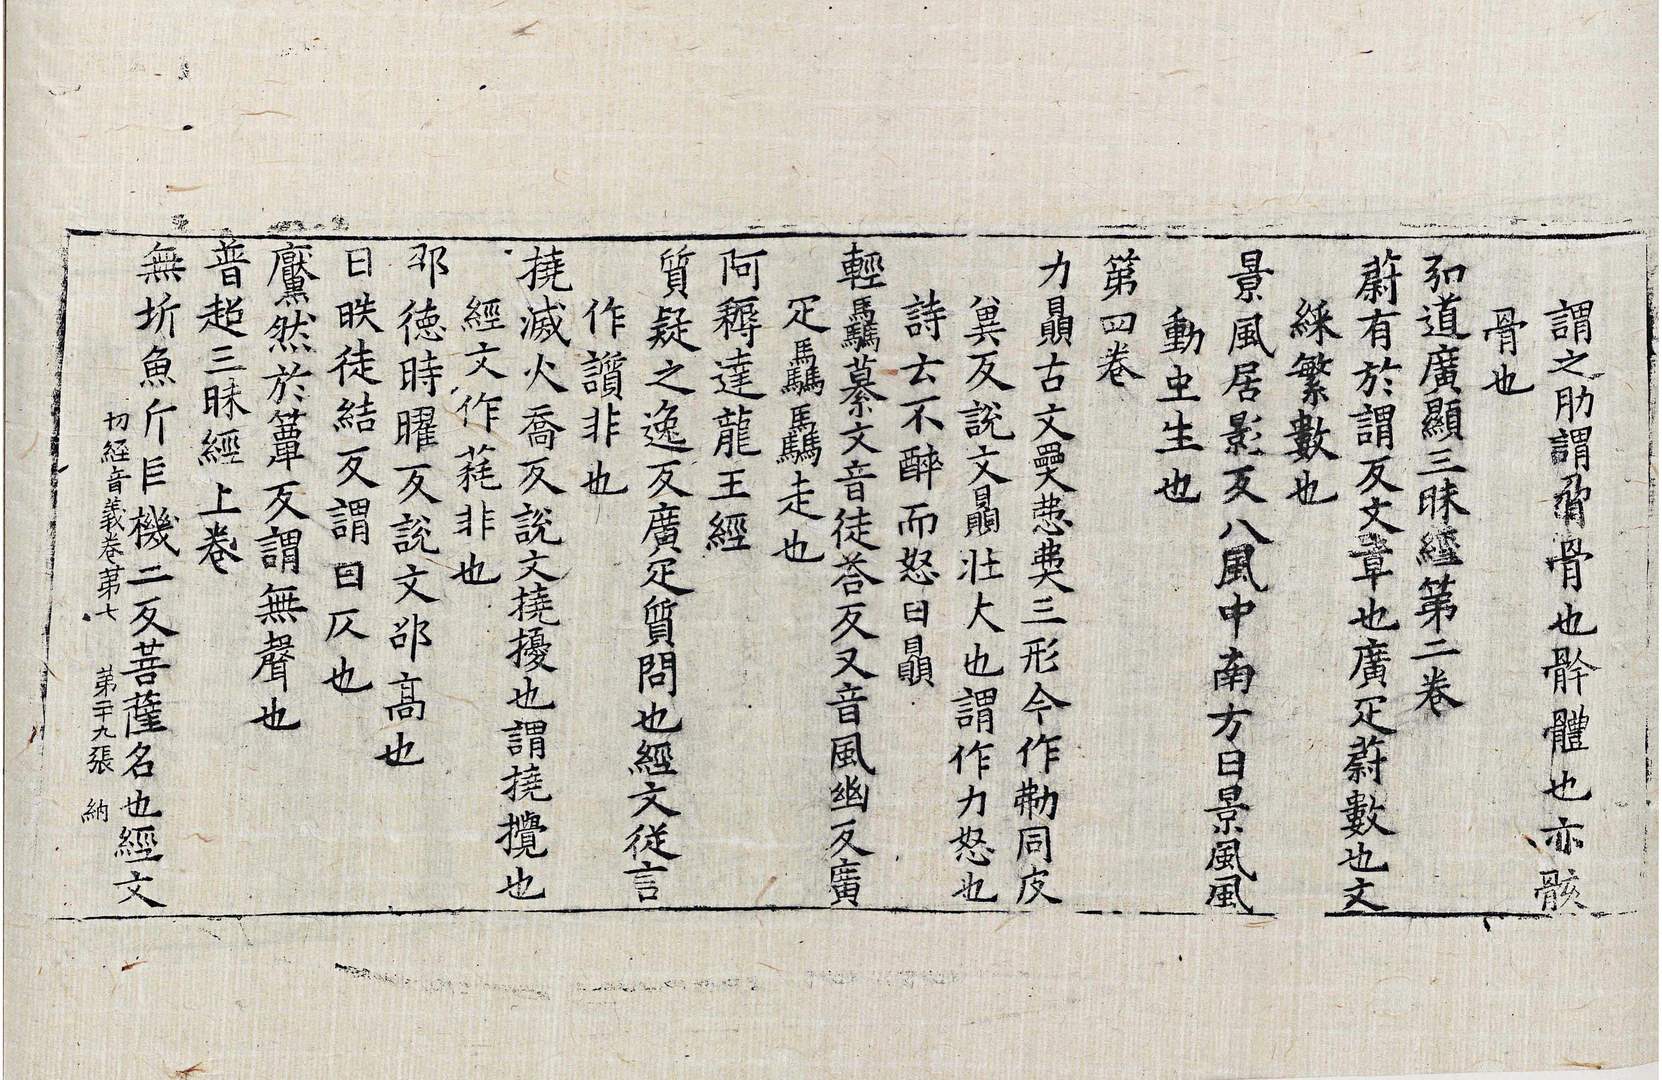 謂之肋謂脅骨也骭體也亦骸
骨也
弘道廣顯三昧經第二卷
蔚有於謂反文章也廣疋蔚數也文
綵繁數也
景風居影反八風中南方曰景風風
動虫生也
第四卷
力贔古文奰㥜㚕三形今作勷同皮
兾反說文贔壯大也謂作力怒也
詩云不醉而怒曰贔
輕驫綦文音徒荅反又音風幽反廣
疋驫驫走也
阿耨達龍王經
質疑之逸反廣疋質問也經文從言
作讀非也
撓滅火喬反說文撓擾也謂撓攪也
經文作㧌非也
邵德時曜反說文邵高也
日昳徒結反謂日仄也
黶然於簟反謂無聲也
普超三昧經上卷
無圻魚斤巨機二反菩薩名也經文
切經音義卷第七 第二十九張 納